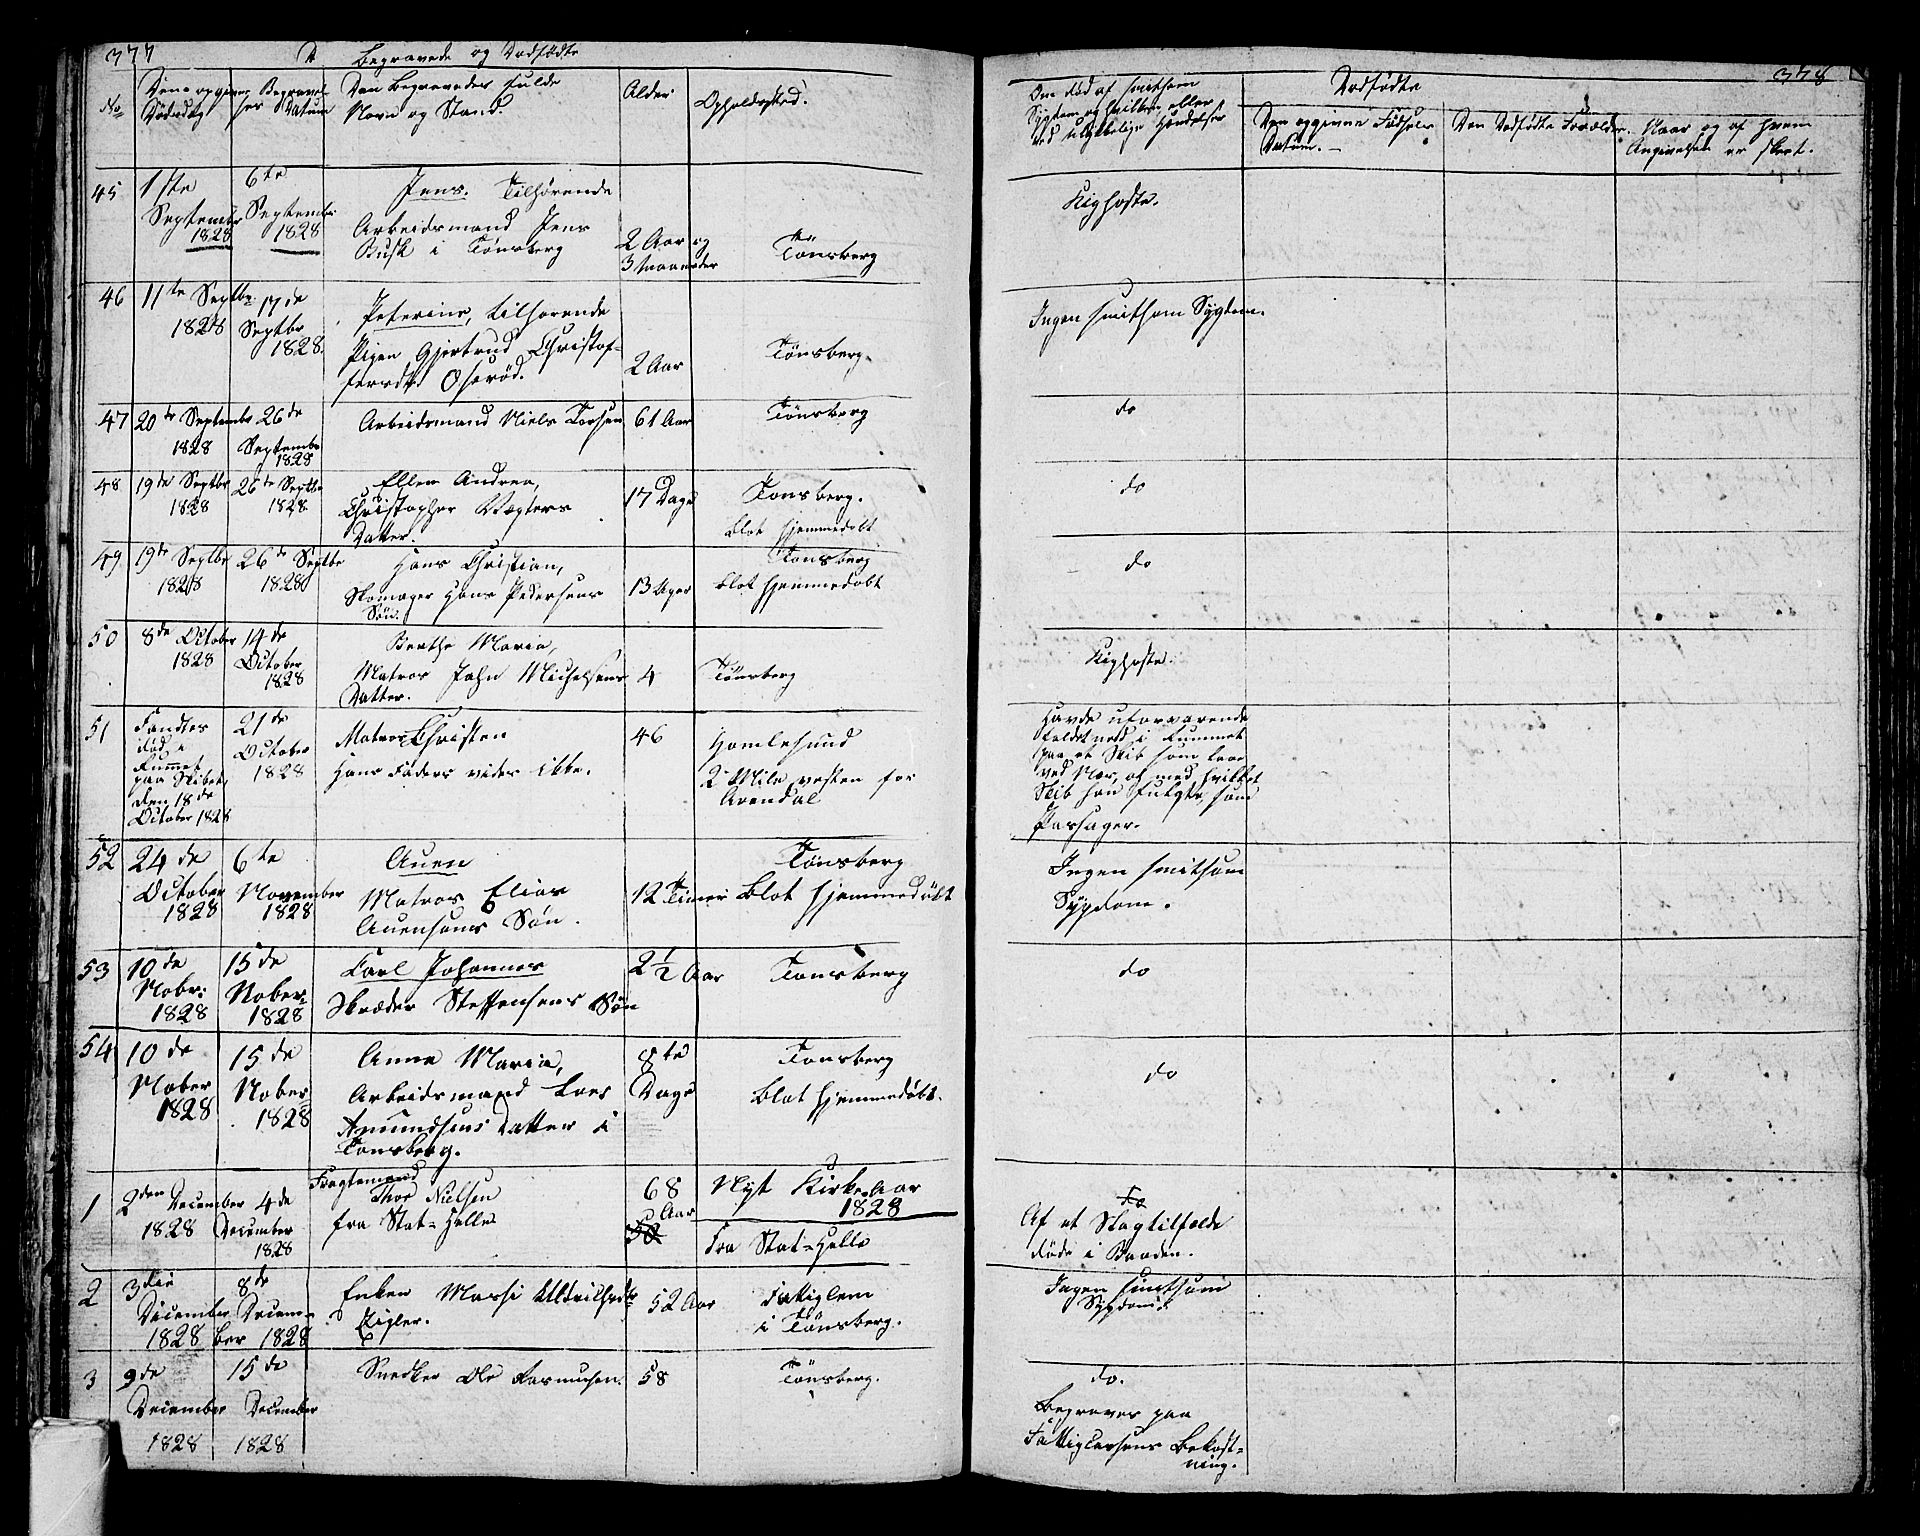 377
Begravede og Dødfødte
No
Den opgivne Dødsdag
Begravelses Datum
Den Begravedes fulde Navn og Stand.
Alder
Opholdssted.
45
1ste September 1828
6te September 1828
Jens. Tilhørende
Arbeidsmand Jens
Busk i Tønsberg
2 Aar og
3 Maaneder
Tønsberg
46
11te Septbr 1828
17de Septbr 1828.
Peterine, tilhørende
Pigen Gjertrud Christof-
fersdtr Oserød.
2 Aar
Tønsberg.
47
20de Septembr 1828
26de Septembr 1828
Arbeidsmand Niels Torsen
61 Aar
Tønsberg
48
19de Septbr 1828
26de Septbr 1828
Ellen Andrea,
Christopher Vægters
Datter.
17 Dage
Tønsberg.
Blot hjemmedøbt
49
19de Septbr 1828
26de Septbr 1828
Hans Christian,
Skomager Hans Pedersens
Søn.
13 Uger
Tønsberg
Blot hjemmedøbt
50
8de October 1828
14de October 1828
Berthe Maria,
Matros John Michelsens
Datter.
4
Tønsberg
51
Fandtes
død i
Rummet
paa Skibet,
den 18de
October 1828
21de October 1828
Matros Christen
Hans Faders vides ikke.
46
Homlesund
2 Mile vesten for
Arendal
52
24de October 1828
6te November 1828
Auen
Matros Elias
Auensøns Søn.
12 Timer
Tønsberg
Blot hjemmedøbt
53
10de Nobr: 1828
15de Nober: 1828
Carl Johannes
Skræder Steffensens Søn
2 1/2 Aar
Tønsberg
54
10de Nober 1828
15de Nober 1828
Anne Maria,
Arbeidsmand Lars
Amundsens Datter i
Tønsberg.
8te Dage
Tønsberg
Blot hjemmedøbt.
1
2den December 1828
4de December 1828
Fragtemand
Thor Nielsen
fra Stat-Helle
68 Aar
Nyt Kirke-Aar
1828
Fra Stat-Helle
2
3die December 1828
8de December 1828
Enken
Zigler.
52 Aar
Fattiglem
i Tønsberg.
3
9de December 1828
15de December 1828
Snedker Ole Rasmusen.
58
Tønsberg.
378
Om død af smitsom
Sygdom og hvilken, eller
ved ulykkelige Hændelser
Dødfødte
Den opgivne Fødsels
Datum.
Den Dødfødte Forælder.
Naar og af hvem
Angivelsen er skeet.
Kighoste.
Ingen smitsom Sygdom.
do
do
do
Kighoste.
Havde uforvarende
faldet ned i Rummet
paa et Skib som laae
ved Nes, og med hvilket
Skib han fulgte, som
Passager.
Ingen smitsom
Sygdom.
do
do
Af et Slagtilfælde
døde i Baaden.
Ingen smitsom
Sygdom
do.
Begraves paa
Fattigcassens Bekost-
ning.